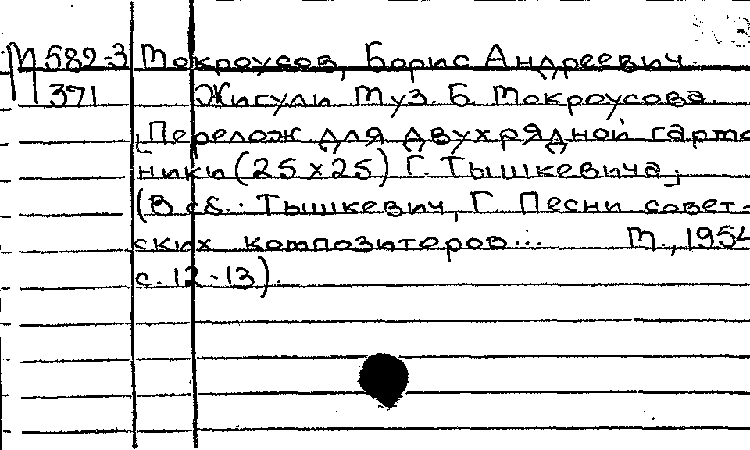 М 582-3 Мокроусов, Борис Андреевич.
371 Жигули Муз. Б. Мокроусова.
[Перелож. для двухрядной гармо
ники (25 x 25) Г. Тышкевича]
(В сб.: Тышкевич, Г. Песни совет-
ских композиторов... М., 1954
с. 12-13).